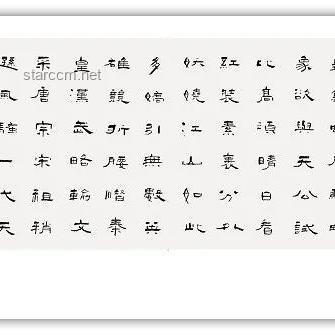 象欲與天公試
比高須晴日看
紅裝素裹分外
妖嬈江山如此
多嬌引無數英
雄競折腰惜秦
皇漢武略輸文
采唐宗宋祖稍
遜風騷一代天
starccm.net